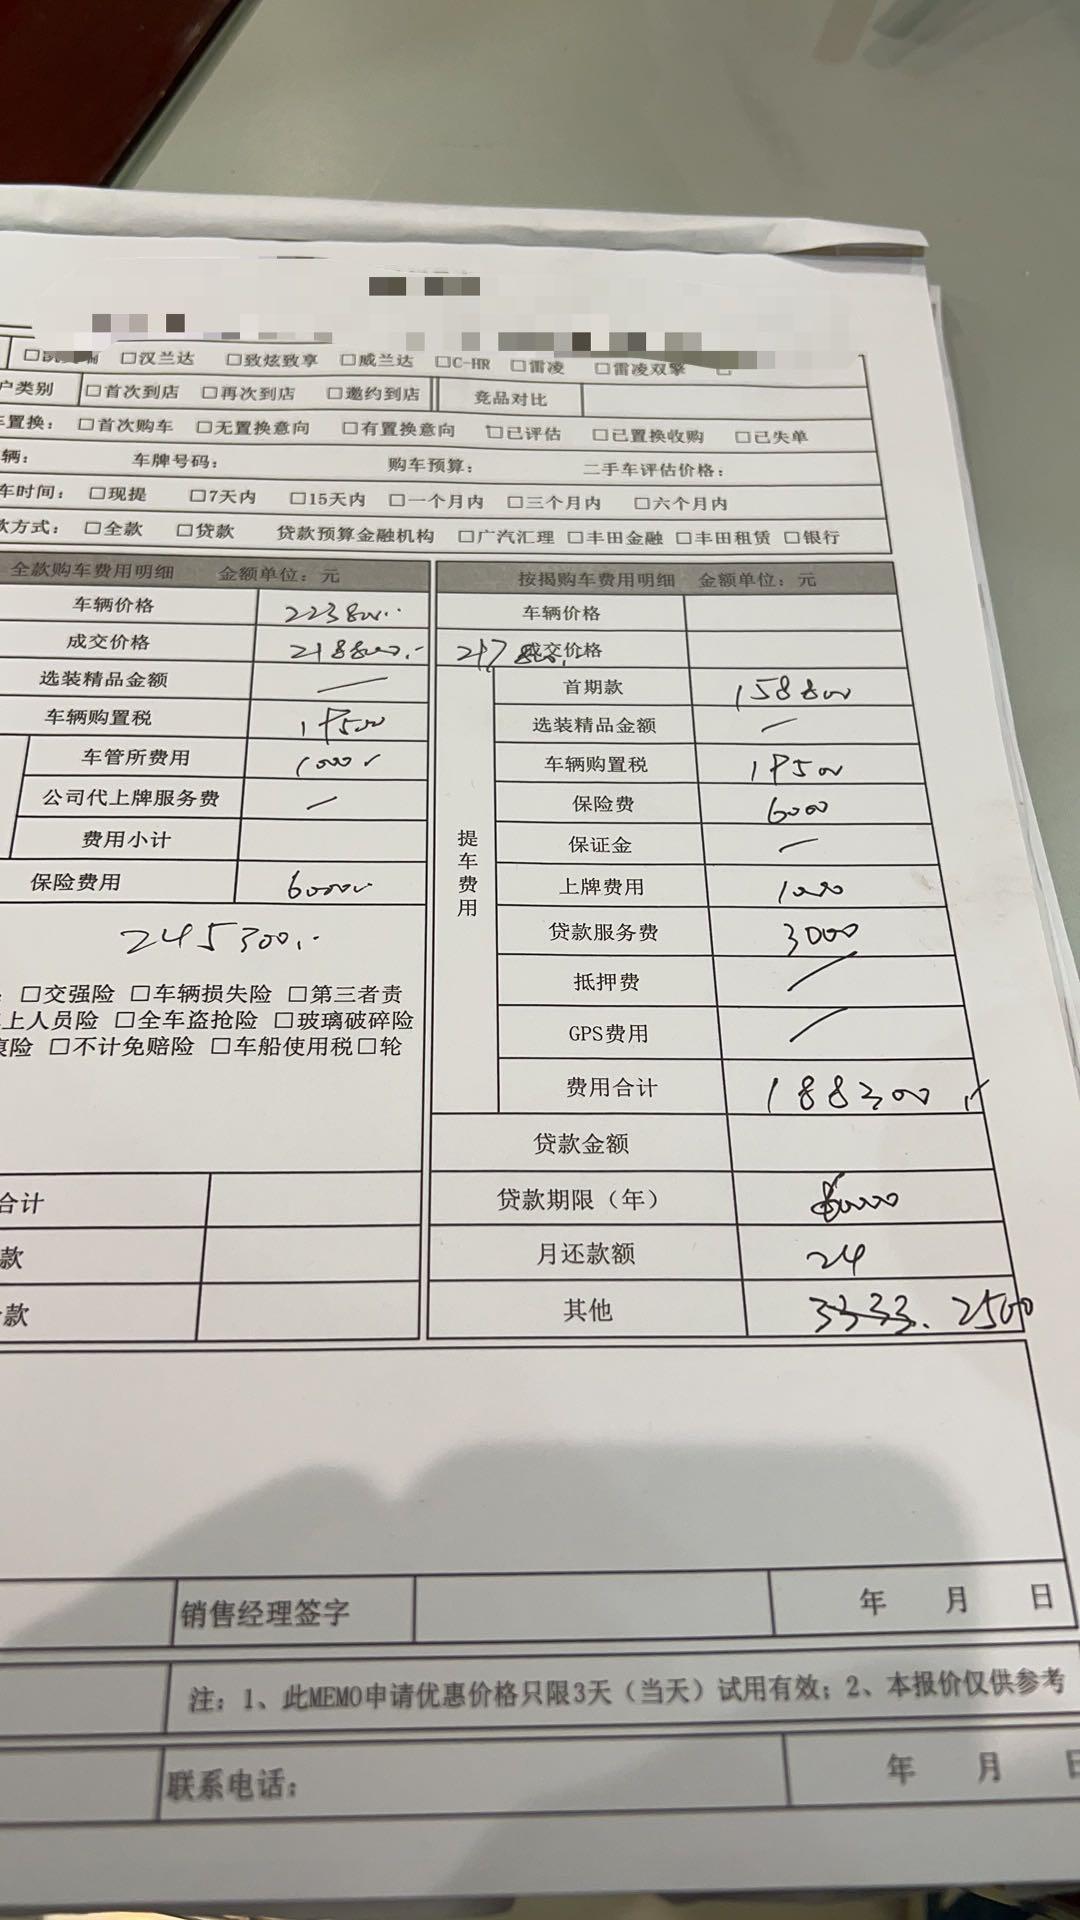 □汉兰达 □致炫致享 □威兰达 □C-HR □雷凌 □雷凌双擎 □
户类别 □首次到店 □再次到店 □邀约到店 竞品对比
车置换： □首次购车 □无置换意向 □有置换意向 □已评估 □已置换收购 □已失单
辆： 车牌号码： 购车预算： 二手车评估价格：
车时间： □现提 □7天内 □15天内 □一个月内 □三个月内 □六个月内
款方式： □全款 □贷款 贷款预算金融机构 □广汽汇理 □丰田金融 □丰田租赁 □银行
全款购车费用明细 金额单位：元
车辆价格 223800
成交价格 218800 217800
选装精品金额 —
车辆购置税 19500
车管所费用 1000
公司代上牌服务费 —
费用小计
保险费用 6000
245300
□交强险 □车辆损失险 □第三者责
上人员险 □全车盗抢险 □玻璃破碎险
痕险 □不计免赔险 □车船使用税□轮
合计
款
款
按揭购车费用明细 金额单位：元
车辆价格
成交价格
提车费用
首期款 158800
选装精品金额 —
车辆购置税 19500
保险费 6000
保证金 —
上牌费用 1000
贷款服务费 3000
抵押费 /
GPS费用 /
费用合计 188300
贷款金额
贷款期限（年） 60000
月还款额 24
其他 3333. 2500
销售经理签字 年 月 日
注：1、此MEMO申请优惠价格只限3天（当天）试用有效；2、本报价仅供参考
联系电话： 年 月 日